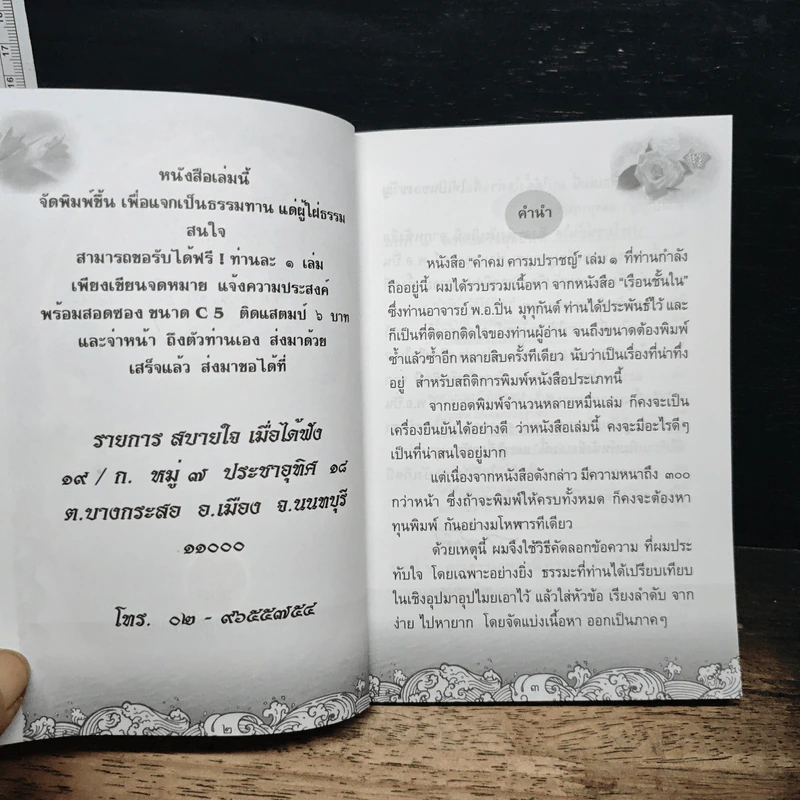 หนังสือเล่มนี้
จัดพิมพ์ขึ้น เพื่อแจกเป็นธรรมทาน แด่ผู้ใฝ่ธรรม
สนใจ
สามารถขอรับได้ฟรี ! ท่านละ ๑ เล่ม
เพียงเขียนจดหมาย แจ้งความประสงค์
พร้อมสอดซอง ขนาด C 5 ติดแสตมป์ ๖ บาท
และจ่าหน้า ถึงตัวท่านเอง ส่งมาด้วย
เสร็จแล้ว ส่งมาขอได้ที่
รายการ สบายใจ เมื่อได้ฟัง
๑๙ / ก. หมู่ ๗ ประชาอุทิศ ๑๘
ต.บางกระสอ อ.เมือง จ.นนทบุรี
๑๑๐๐๐
โทร. ๐๒ - ๙๖๕๕๗๕๔
๒
คำนำ
หนังสือ “คำคม คารมปราชญ์” เล่ม ๑ ที่ท่านกำลัง
ถืออยู่นี้ ผมได้รวบรวมเนื้อหา จากหนังสือ “เรือนชั้นใน”
ซึ่งท่านอาจารย์ พ.อ.ปิ่น มุทุกันต์ ท่านได้ประพันธ์ไว้ และ
ก็เป็นที่ติดอกติดใจของท่านผู้อ่าน จนถึงขนาดต้องพิมพ์
ซ้ำแล้วซ้ำอีก หลายสิบครั้งทีเดียว นับว่าเป็นเรื่องที่น่าทึ่ง
อยู่ สำหรับสถิติการพิมพ์หนังสือประเภทนี้
จากยอดพิมพ์จำนวนหลายหมื่นเล่ม ก็คงจะเป็น
เครื่องยืนยันได้อย่างดี ว่าหนังสือเล่มนี้ คงจะมีอะไรดีๆ
เป็นที่น่าสนใจอยู่มาก
แต่เนื่องจากหนังสือดังกล่าว มีความหนาถึง ๓๐๐
กว่าหน้า ซึ่งถ้าจะพิมพ์ให้ครบทั้งหมด ก็คงจะต้องหา
ทุนพิมพ์ กันอย่างมโหฬารทีเดียว
ด้วยเหตุนี้ ผมจึงใช้วิธีคัดลอกข้อความ ที่ผมประ
ทับใจ โดยเฉพาะอย่างยิ่ง ธรรมะที่ท่านได้เปรียบเทียบ
ในเชิงอุปมาอุปไมยเอาไว้ แล้วใส่หัวข้อ เรียงลำดับ จาก
ง่าย ไปหายาก โดยจัดแบ่งเนื้อหา ออกเป็นภาคๆ
๓
16
17